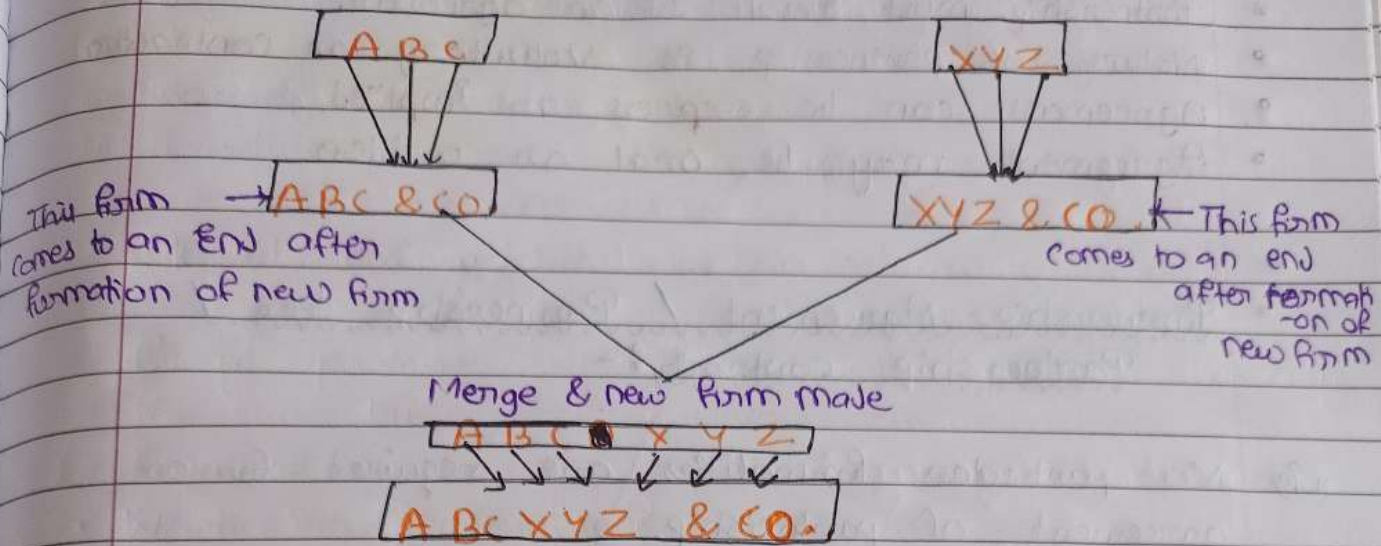 A B C
X Y Z
A B C & CO
X Y Z & CO.
This firm
comes to an End after
formation of new firm
This firm
comes to an end
after format
-on of
new firm
Merge & new firm made
A B C X Y Z
A B C X Y Z & CO.